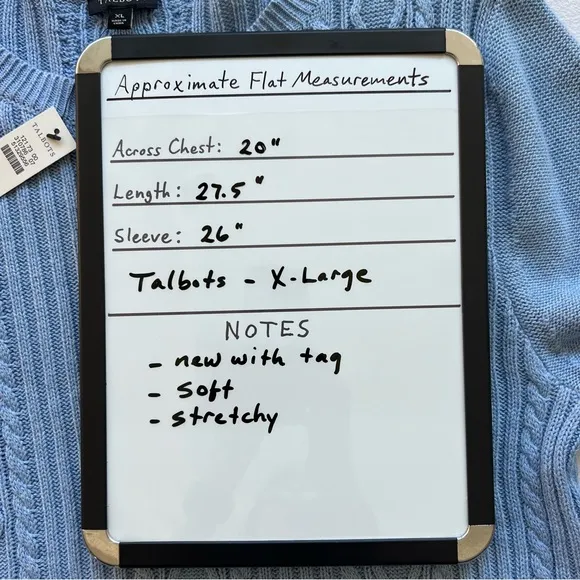 TALBOTS
XL
Approximate Flat Measurements
TALBOTS
Across Chest: 20"
Length: 27.5"
Sleeve: 26"
Talbots - X-Large
NOTES
- new with tag
- soft
- stretchy